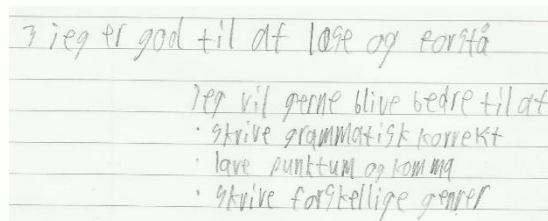 3 jeg er god til at læse og forstå
jeg vil gerne blive bedre til at
· skrive grammatisk korrekt
· lave punktum og komma
· skrive forskellige genrer